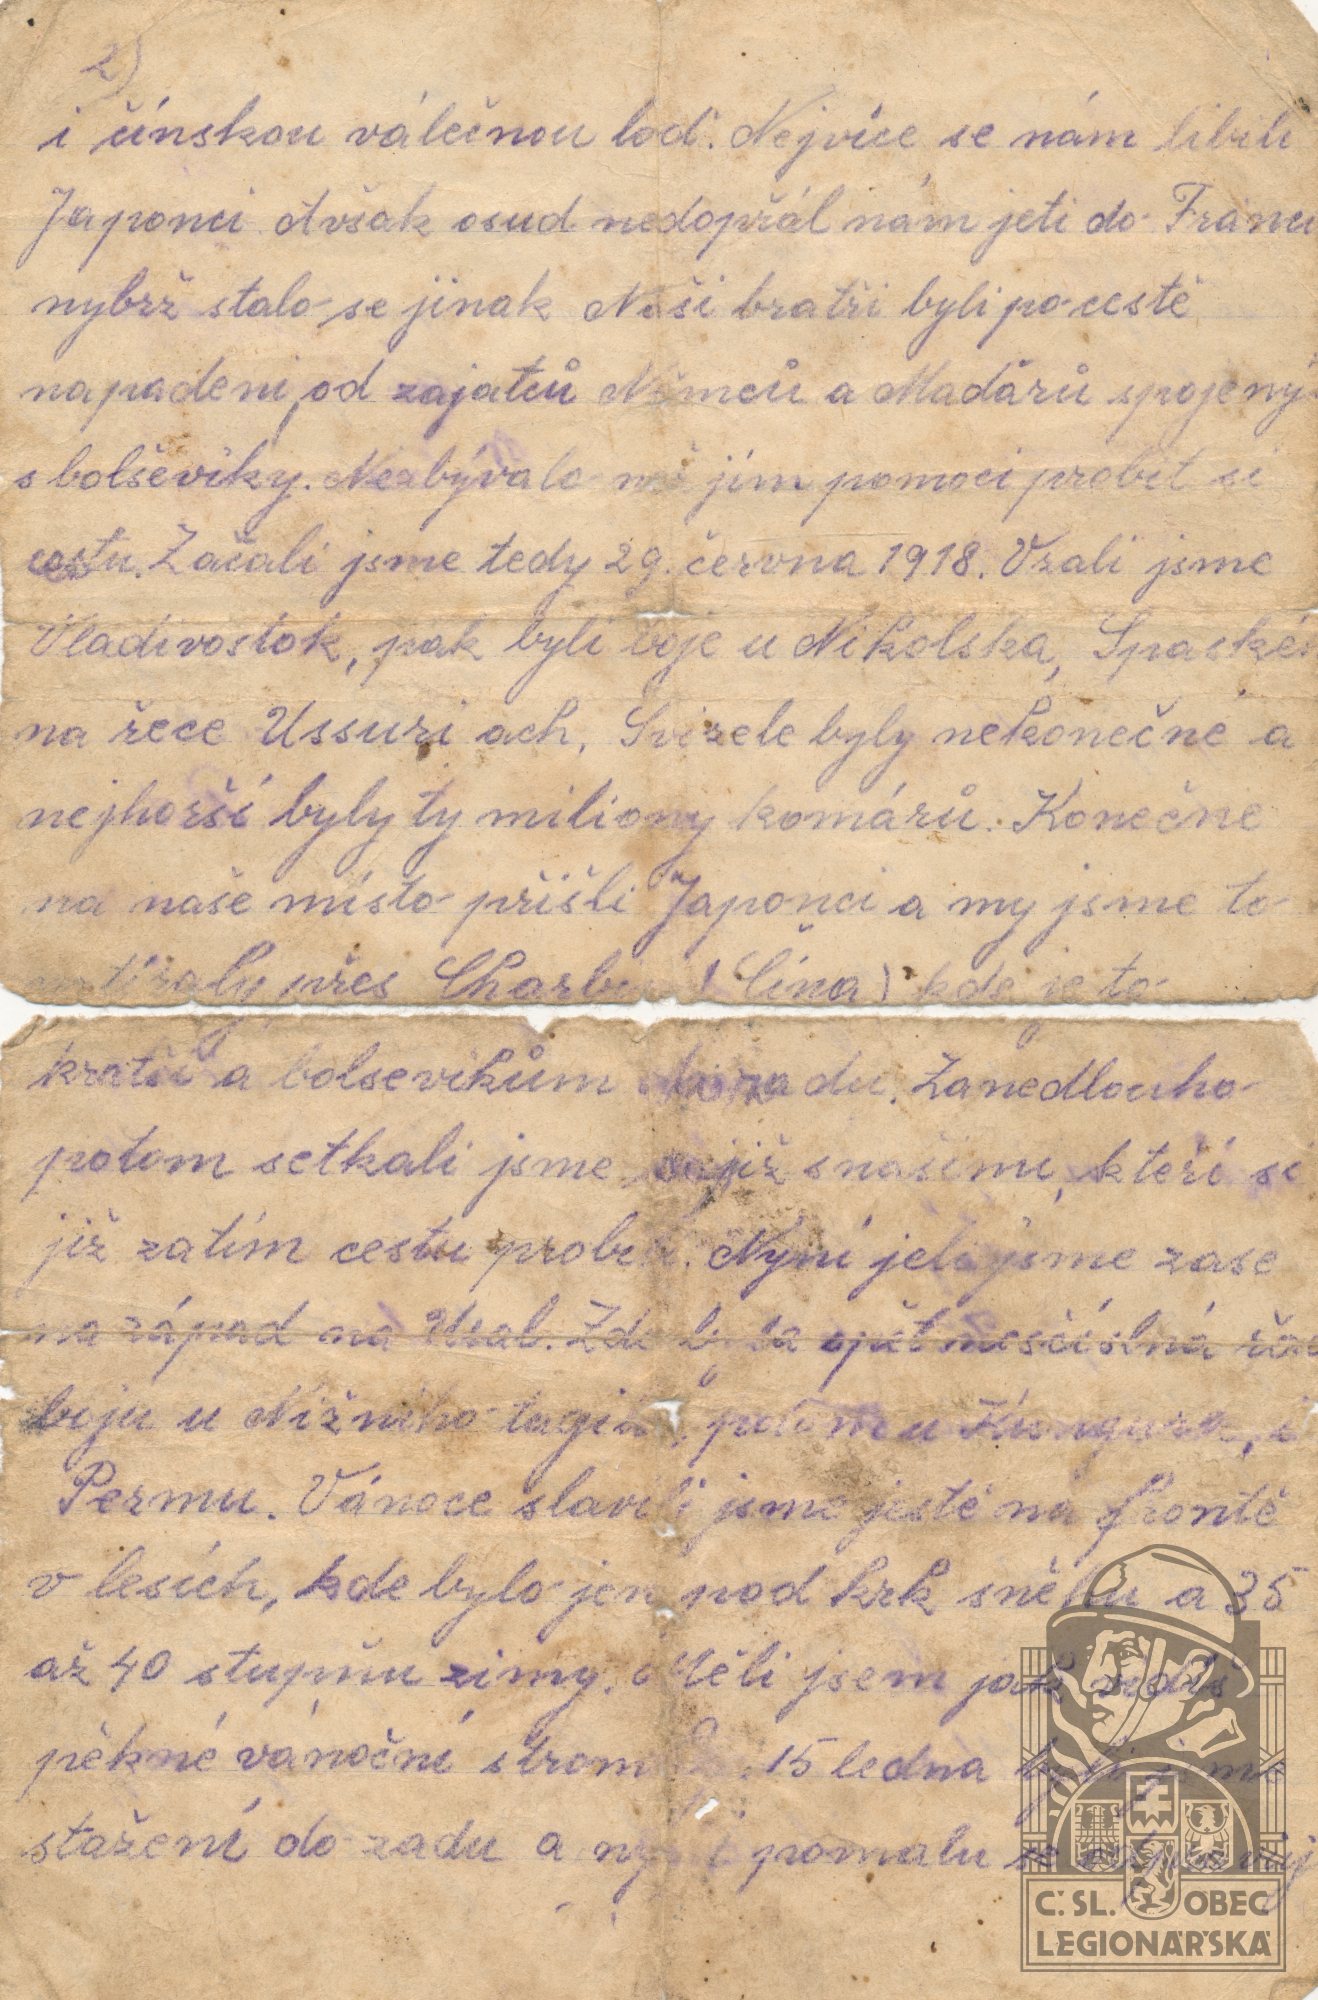 2)
i čínskou válečnou loď. Nejvíce se nám líbili
Japonci Avšak osud nedopřál nám jeti do Franci
nybrž stalo se jinak Naši bratři byli po cestě
napadeni od zajatců Němců a Maďărů spojený
s bolševiky. Nezbývalo než jím pomoci probít si
cestu. Začali jsme tedy 29. června 1918. Vzali jsme
Vladivostok, pak byli boje u Nikolska, Spaském
na řece Ussuri ach, Svizele byly nekonečné a
nejhorší byly ty miliony komárů. Konečne
na naše místo přišli Japonci a my jsme to
přes Charbin (Čína) kde je to
kratší a bolsevikům do zadu. Zanedlouho
potom setkali jsme se již s našimi, kteří si
již zatím cestu probili. Nýní jeli jsme zase
na západ na Ural. Zde byla opět nesčíslná řad
boju u Nižního tagilu, potom u Kungura, i
Permu. Vánoce slavili jsme ještě na frontě
v lesích, kde bylo jen pod krk sněhu a 35
až 40 stupňu zimy. Měli jsem jak vidiš
pěkné vánoční strom 15 ledna byli jsme
staženi do zadu a nyní pomalu se
Č.SL. OBEC
LEGIONÁŘSKÁ